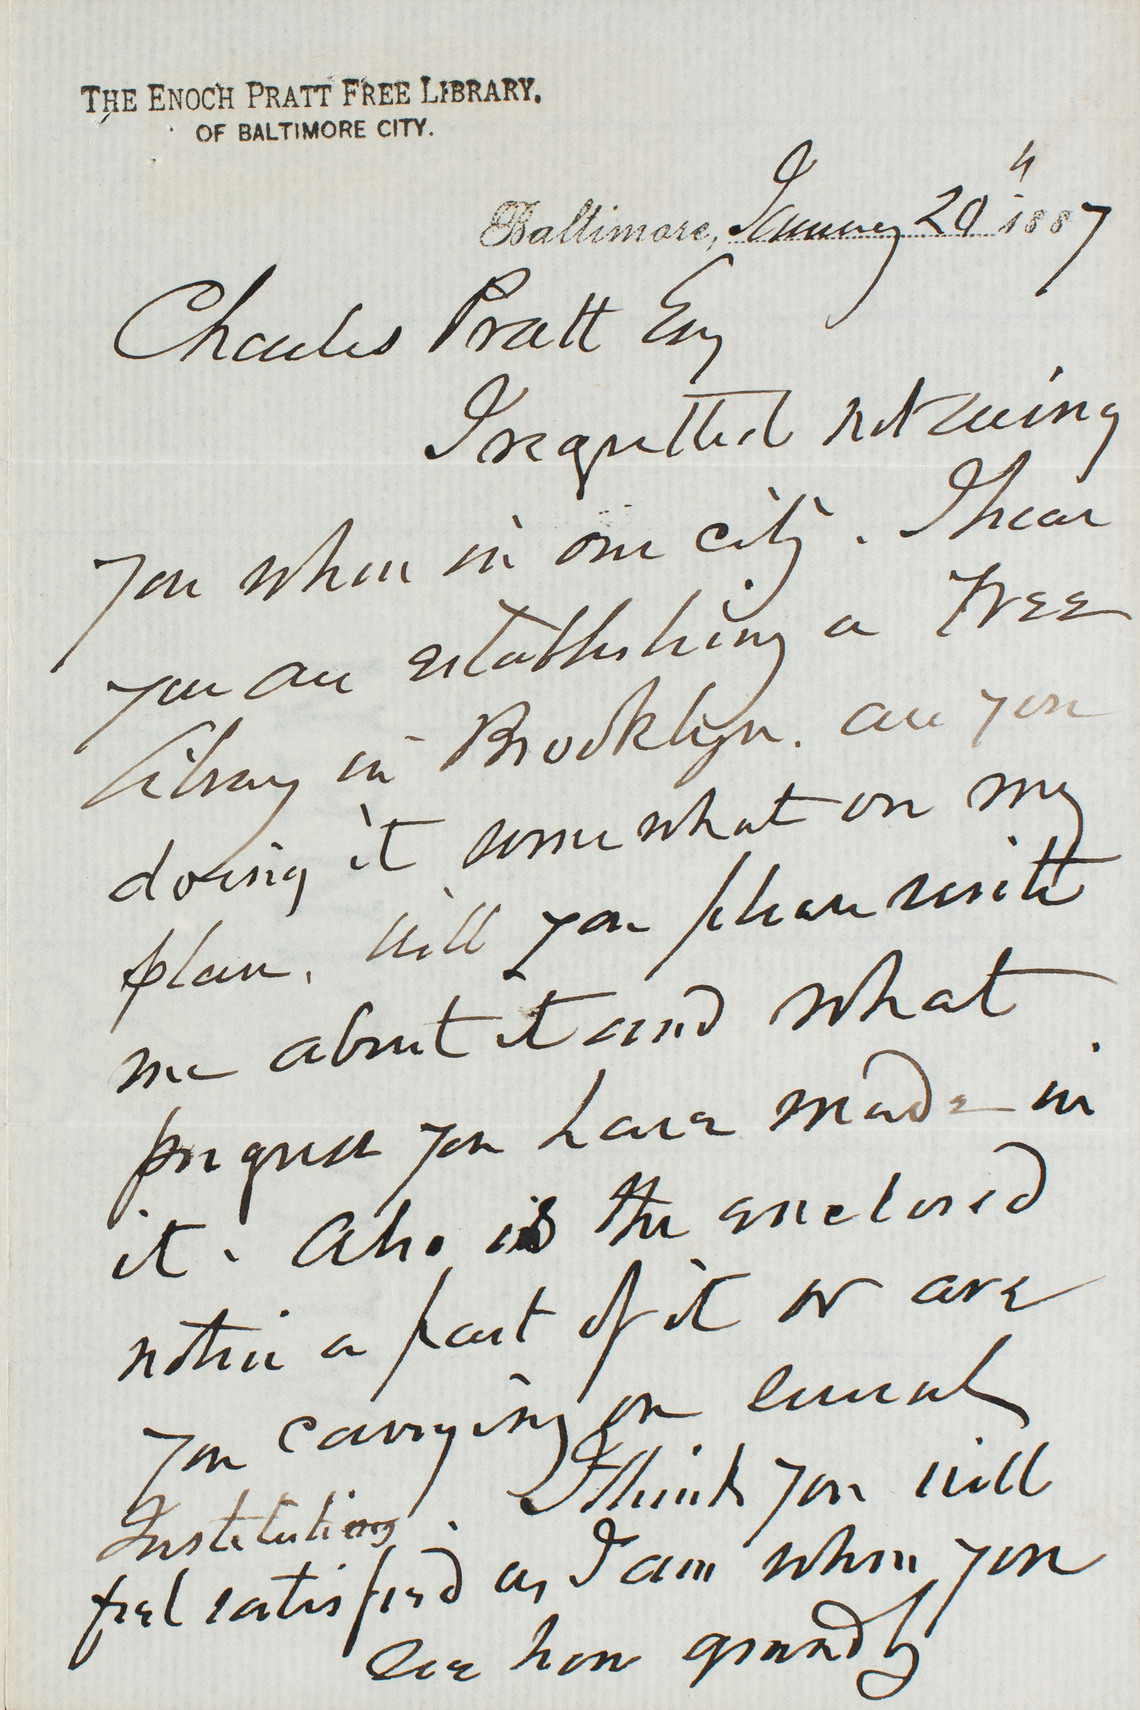 THE ENOCH PRATT FREE LIBRARY.
OF BALTIMORE CITY.
Baltimore, January 20th 1887
Charles Pratt Esq
I regretted not seeing
you when in our city. I hear
you are establishing a Free
Library in Brooklyn. are you
doing it somewhat on my
plan. Will you please write
me about it and what
progress you have made in
it. Also is the enclosed
notice a part of it or are
you carrying on several
Institutions. I think you will
feel satisfied as I am when you
see how grandly